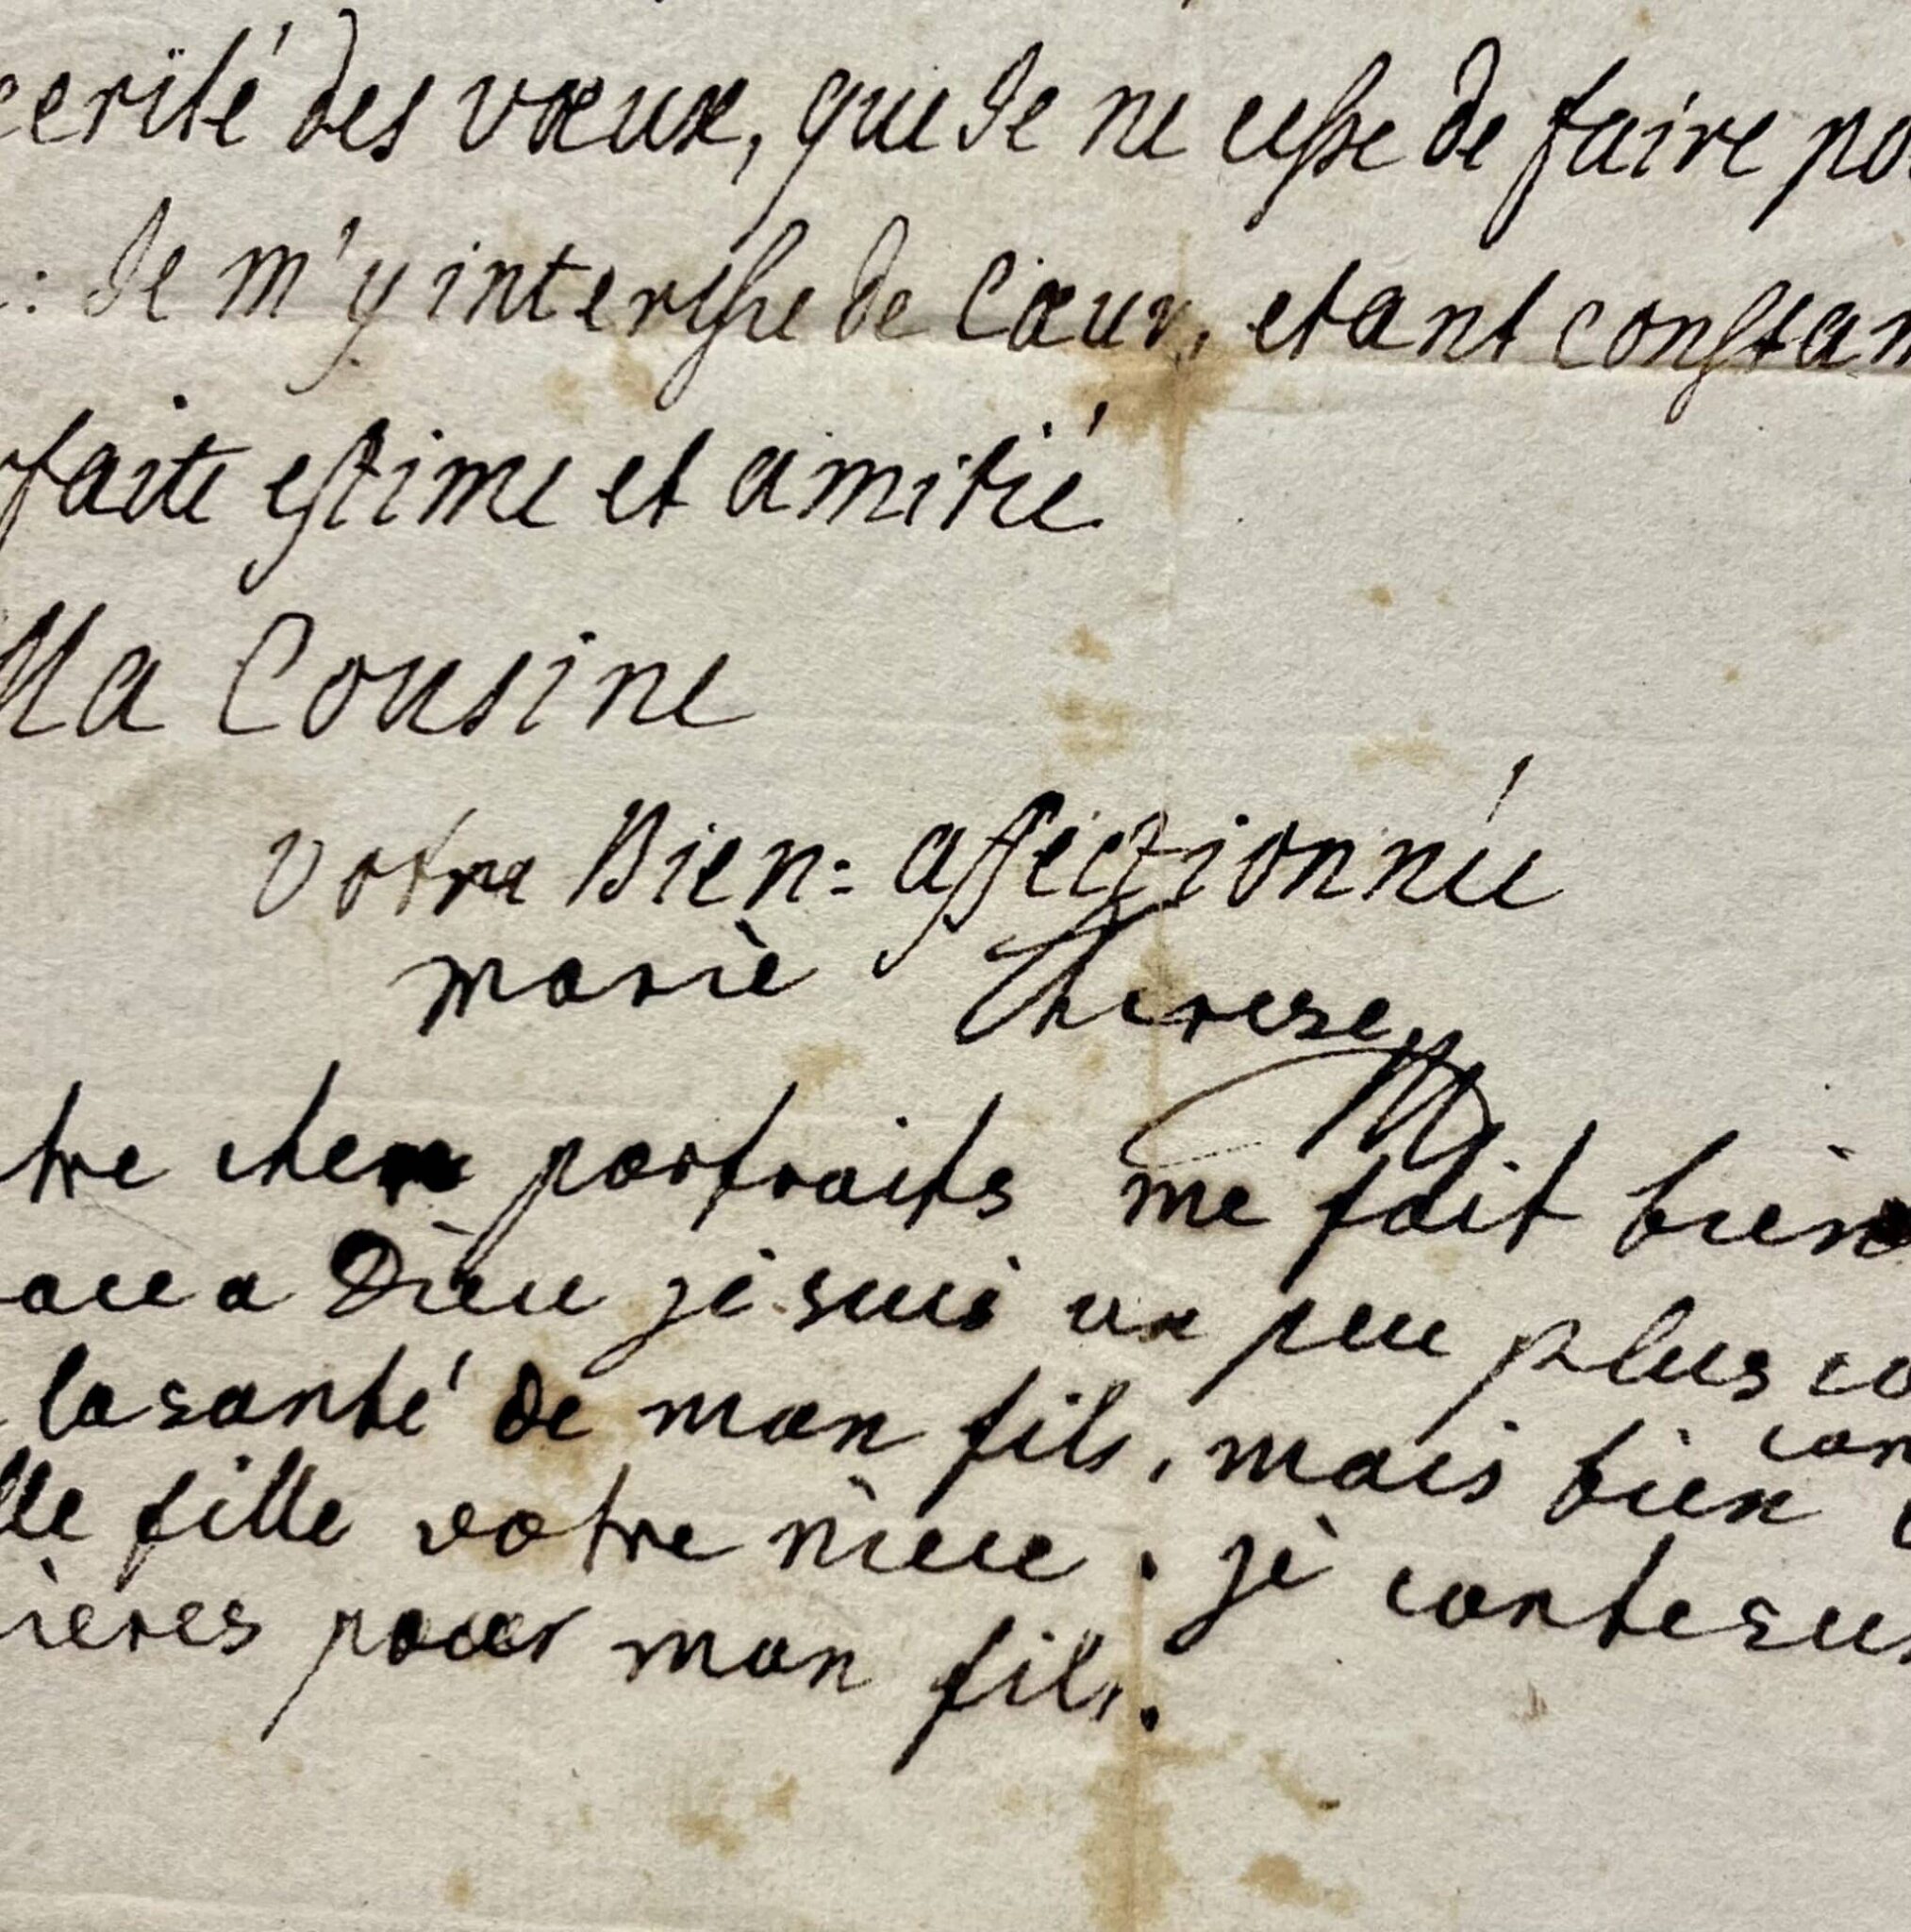 cerité des vœux, que Je ne cesse de faire po
: Je m'y interesse de Cœur, etant constam
rfaite estime et amitié
Ma Cousine
votre Bien: affectionnée
marie Therese
tre chere portraits me fait bien
race a Dieu je suis un peu plus co
la santé de mon fils, mais bien
con
lle fille votre niece. je conte sur
ieres pour mon fils.